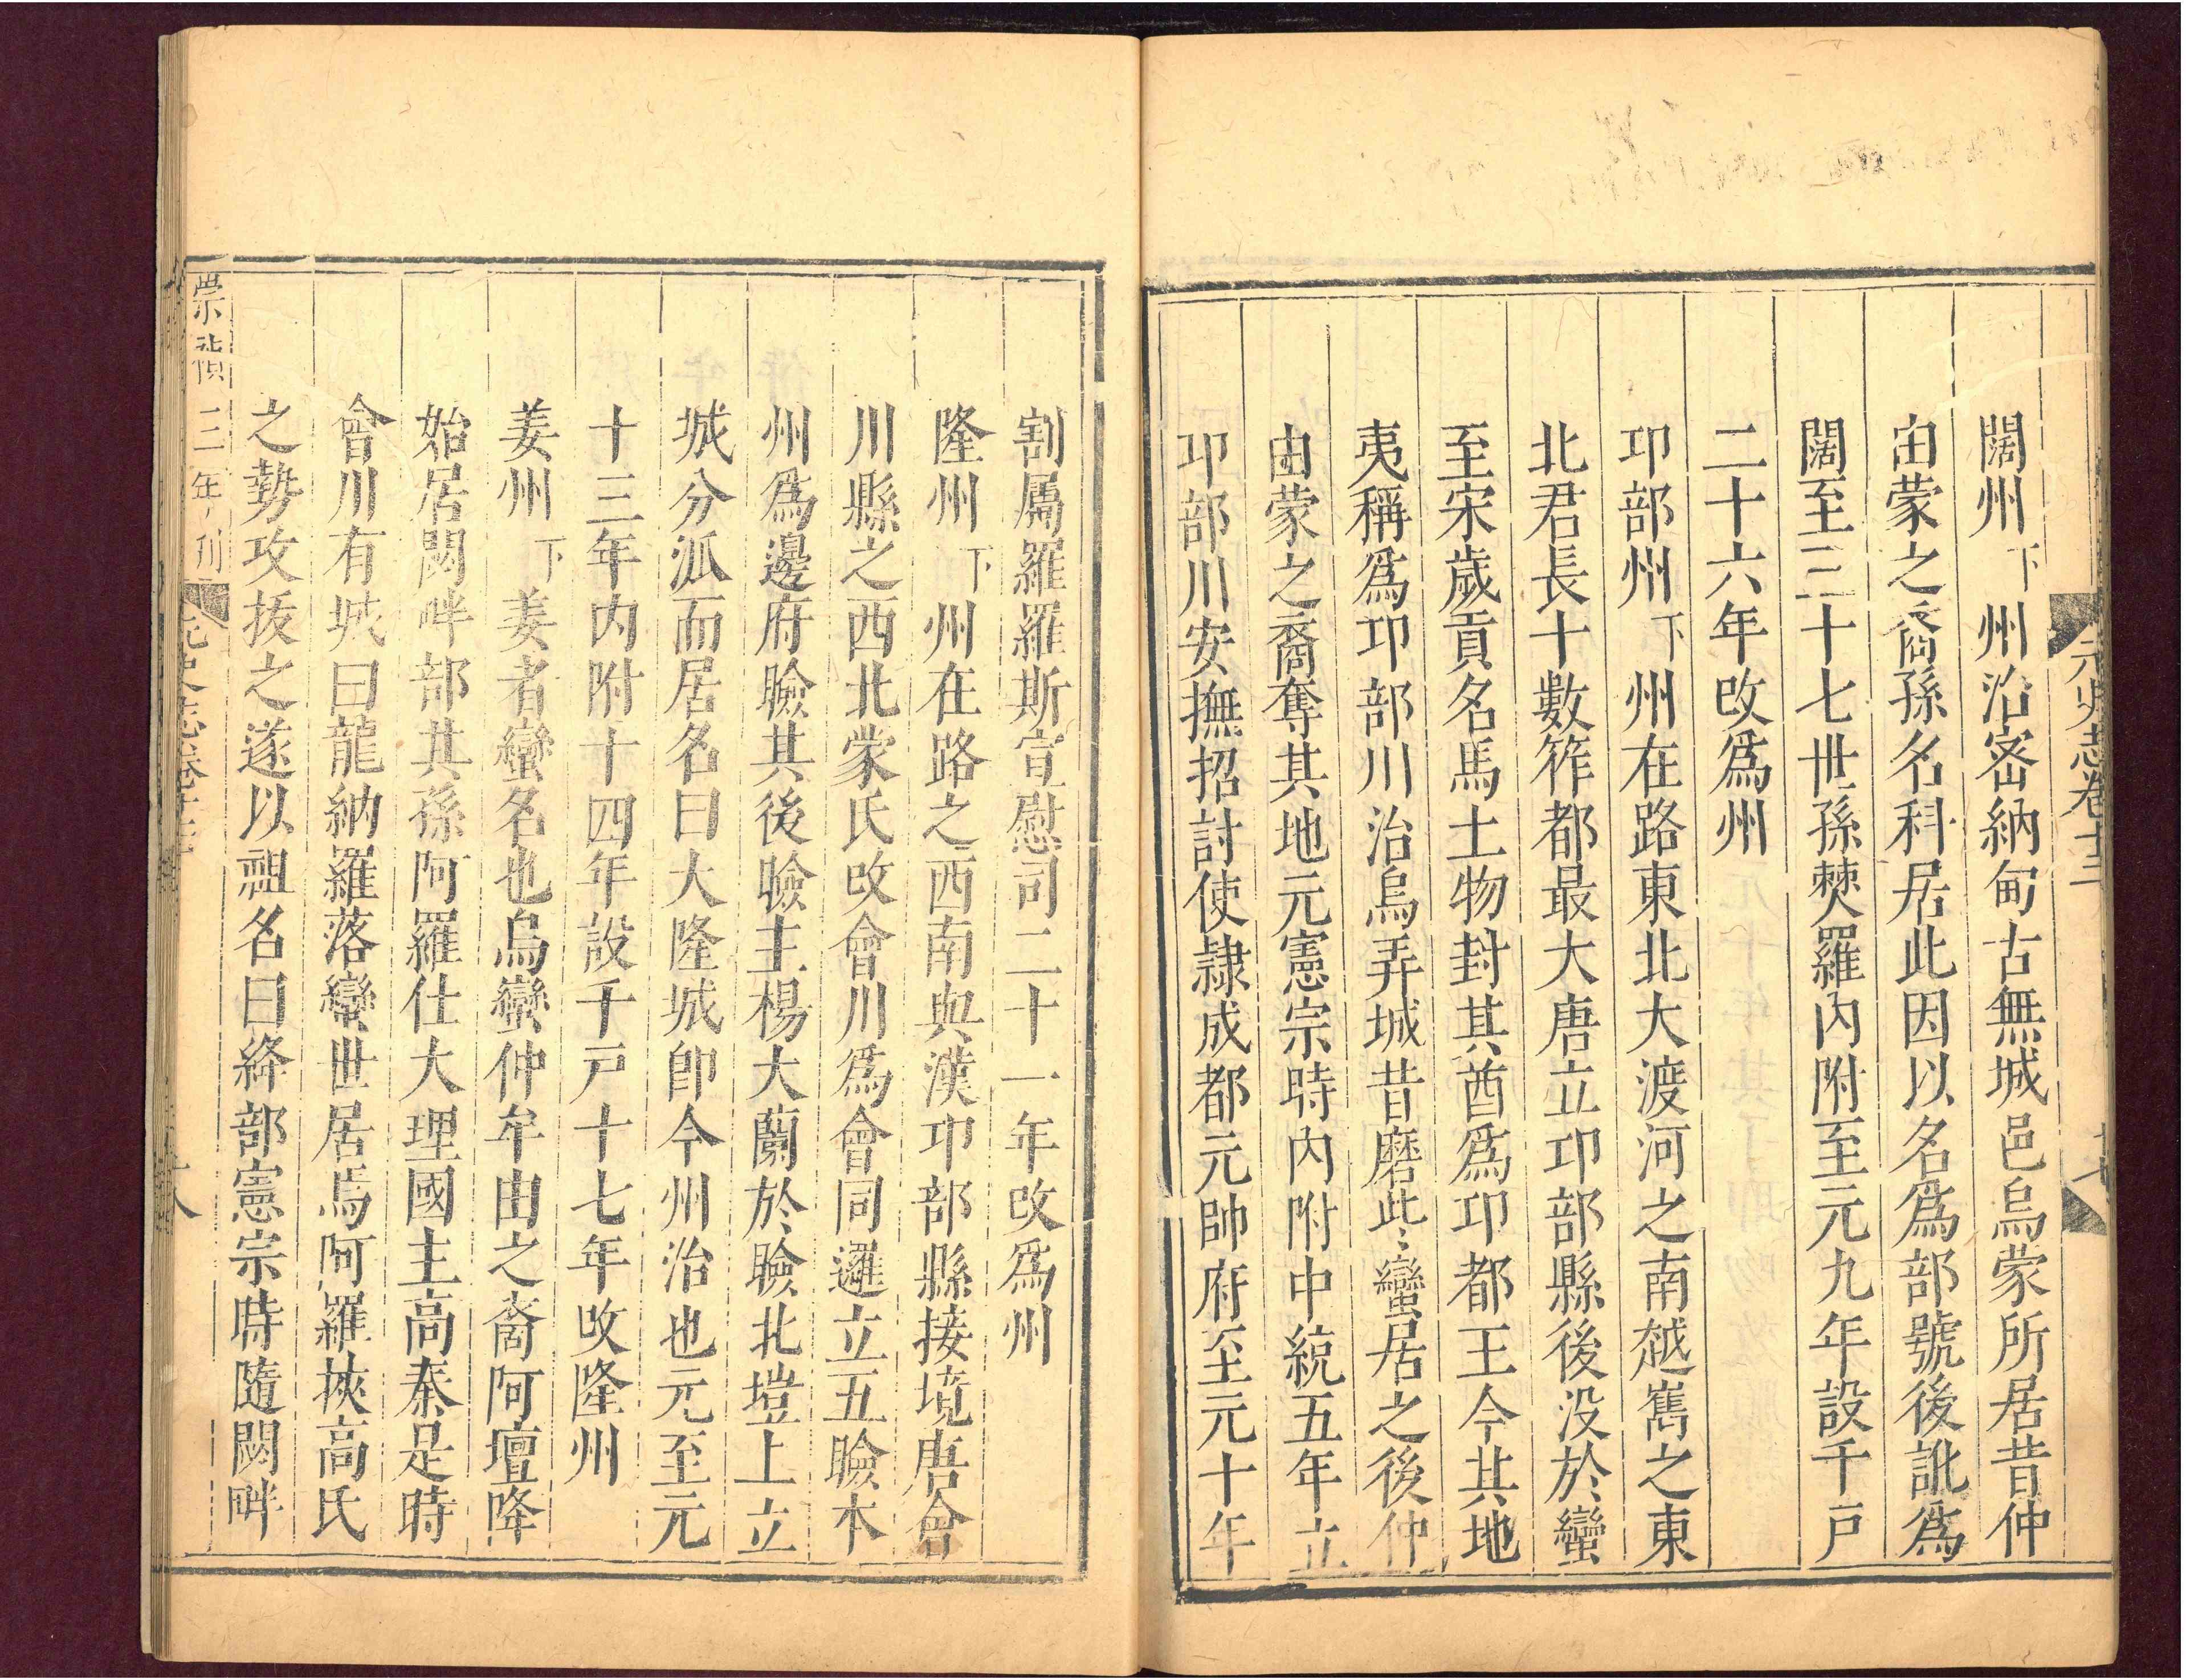 元史志卷十三
十七
闊州下 州治密納甸古無城邑烏蒙所居昔仲
由蒙之裔孫名科居此因以名爲部號後訛爲
闊至三十七世孫僰羅內附至元九年設千戶
二十六年改爲州
邛部州下 州在路東北大渡河之南越嶲之東
北君長十數筰都最大唐立邛部縣後没於蠻
至宋歲貢名馬土物封其酋爲邛都王今其地
夷稱爲邛部川治烏弄城昔磨些蠻居之後仲
由蒙之裔奪其地元憲宗時內附中統五年立
邛部川安撫招討使隷成都元帥府至元十年
割屬羅羅斯宣慰司二十一年改爲州
隆州下 州在路之西南與漢邛部縣接境唐會
川縣之西北蒙氏改會川爲會同邏立五瞼本
州爲邊府瞼其後瞼主楊大蘭於瞼北塏上立
城分派而居名曰大隆城卽今州治也元至元
十三年內附十四年設千戶十七年改隆州
姜州下 姜者蠻名也烏蠻仲牟由之裔阿壇降
始居閟畔部其孫阿羅仕大理國主高秦是時
會川有城曰龍納羅落蠻世居焉阿羅挾高氏
之勢攻拔之遂以祖名曰絳部憲宗時隨閟畔
崇禎三年刊
元史志卷十三
十八